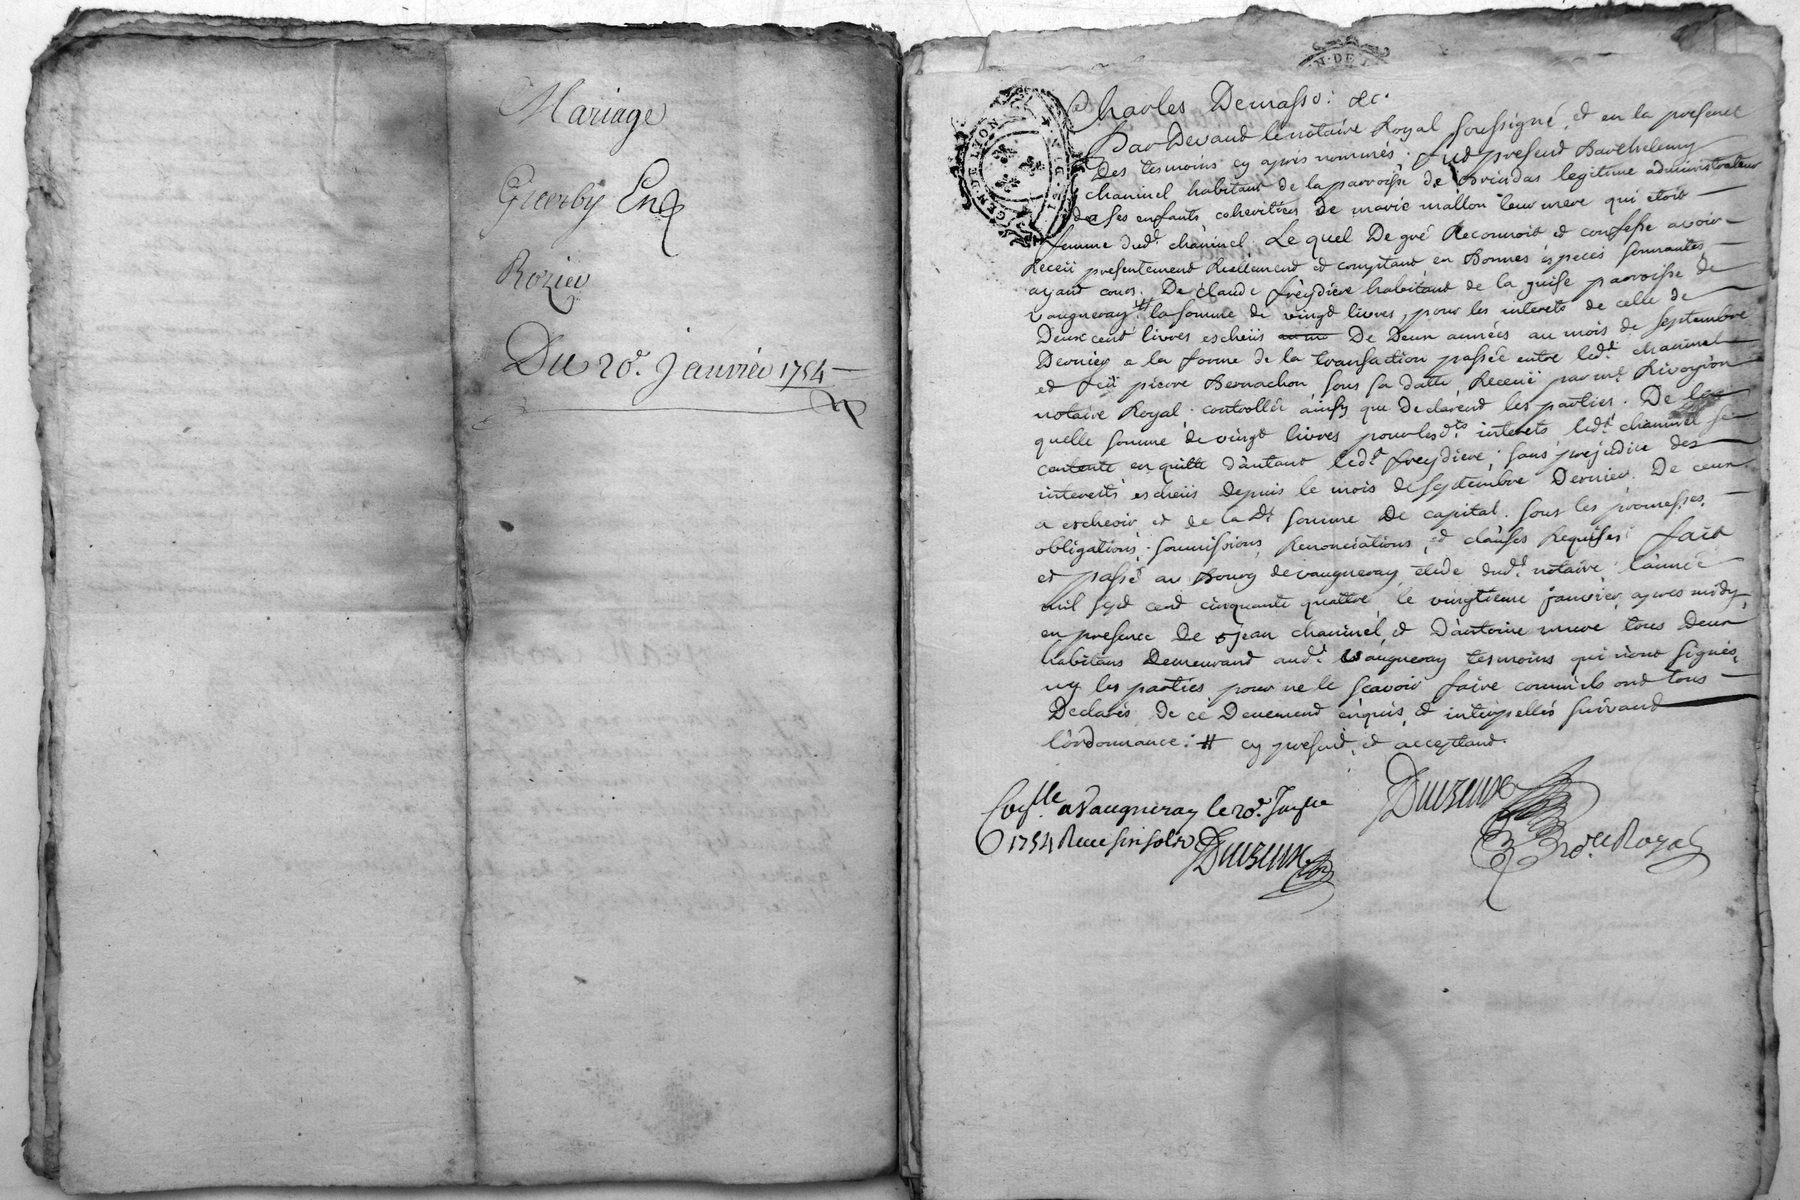 Mariage
Rozier
Du 20e. Janvier 1754
GEN · DE LYON
Charles Demasso: &c.
Par Devant le notaire Royal soussigné, et en la presence
Des tesmoins cy apres nommés, fut present Barthelemy
chaninel habitant de la parroisse de Brindas legitime administrateur
de ses enfants coheritiers de marie mallon leur mere qui etoit
femme dud. chaninel. Lequel De gré Reconnoit et confesse avoir
Receü presentement Reellement et comptant en Bonnes especes sonnantes
ayant cours. De claude freydiere habitant de la parroisse de
vaugneray # la somme de vingt livres, pour les interets de celle de
Deux cent livres escheüs De Deux années au mois de septembre
Dernier a la forme de la transaction passée entre led. chaninel
et feü pierre Bernachon sous sa datte, Receüe par me Rivoyron
notaire Royal. controllée ainsy que declarent les parties. De la
quelle somme de vingt livres pour lesd.ts interets led.t chaninel se
contente en quitte d'autant led.t freydiere, sans prejudice des
interests escheüs depuis le mois de septembre Dernier. De ceux
a escheoir et de la d.t somme De capital. sous les promesses
obligations, soumissions, Renonciations, et clauses Requises: fait
et passé au Bourg de vaugneray etude dud.t notaire l'année
mil sept cent cinquante quattre, le vingtieme janvier, apres midy,
en presence De jean chaninel, et D'antoine mure tous Deux
habitans Demeurant aud.t vaugneray tesmoins qui n'ont signés,
ny les parties pour ne le sçavoir faire comm'ils ont tous
Declarés de ce Deuement enquis, et interpellés suivant
l'ordonnance: # cy present, et acceptant.
Con.lle a Vaugneray le 20e.
1754 Receu six sols
Royal